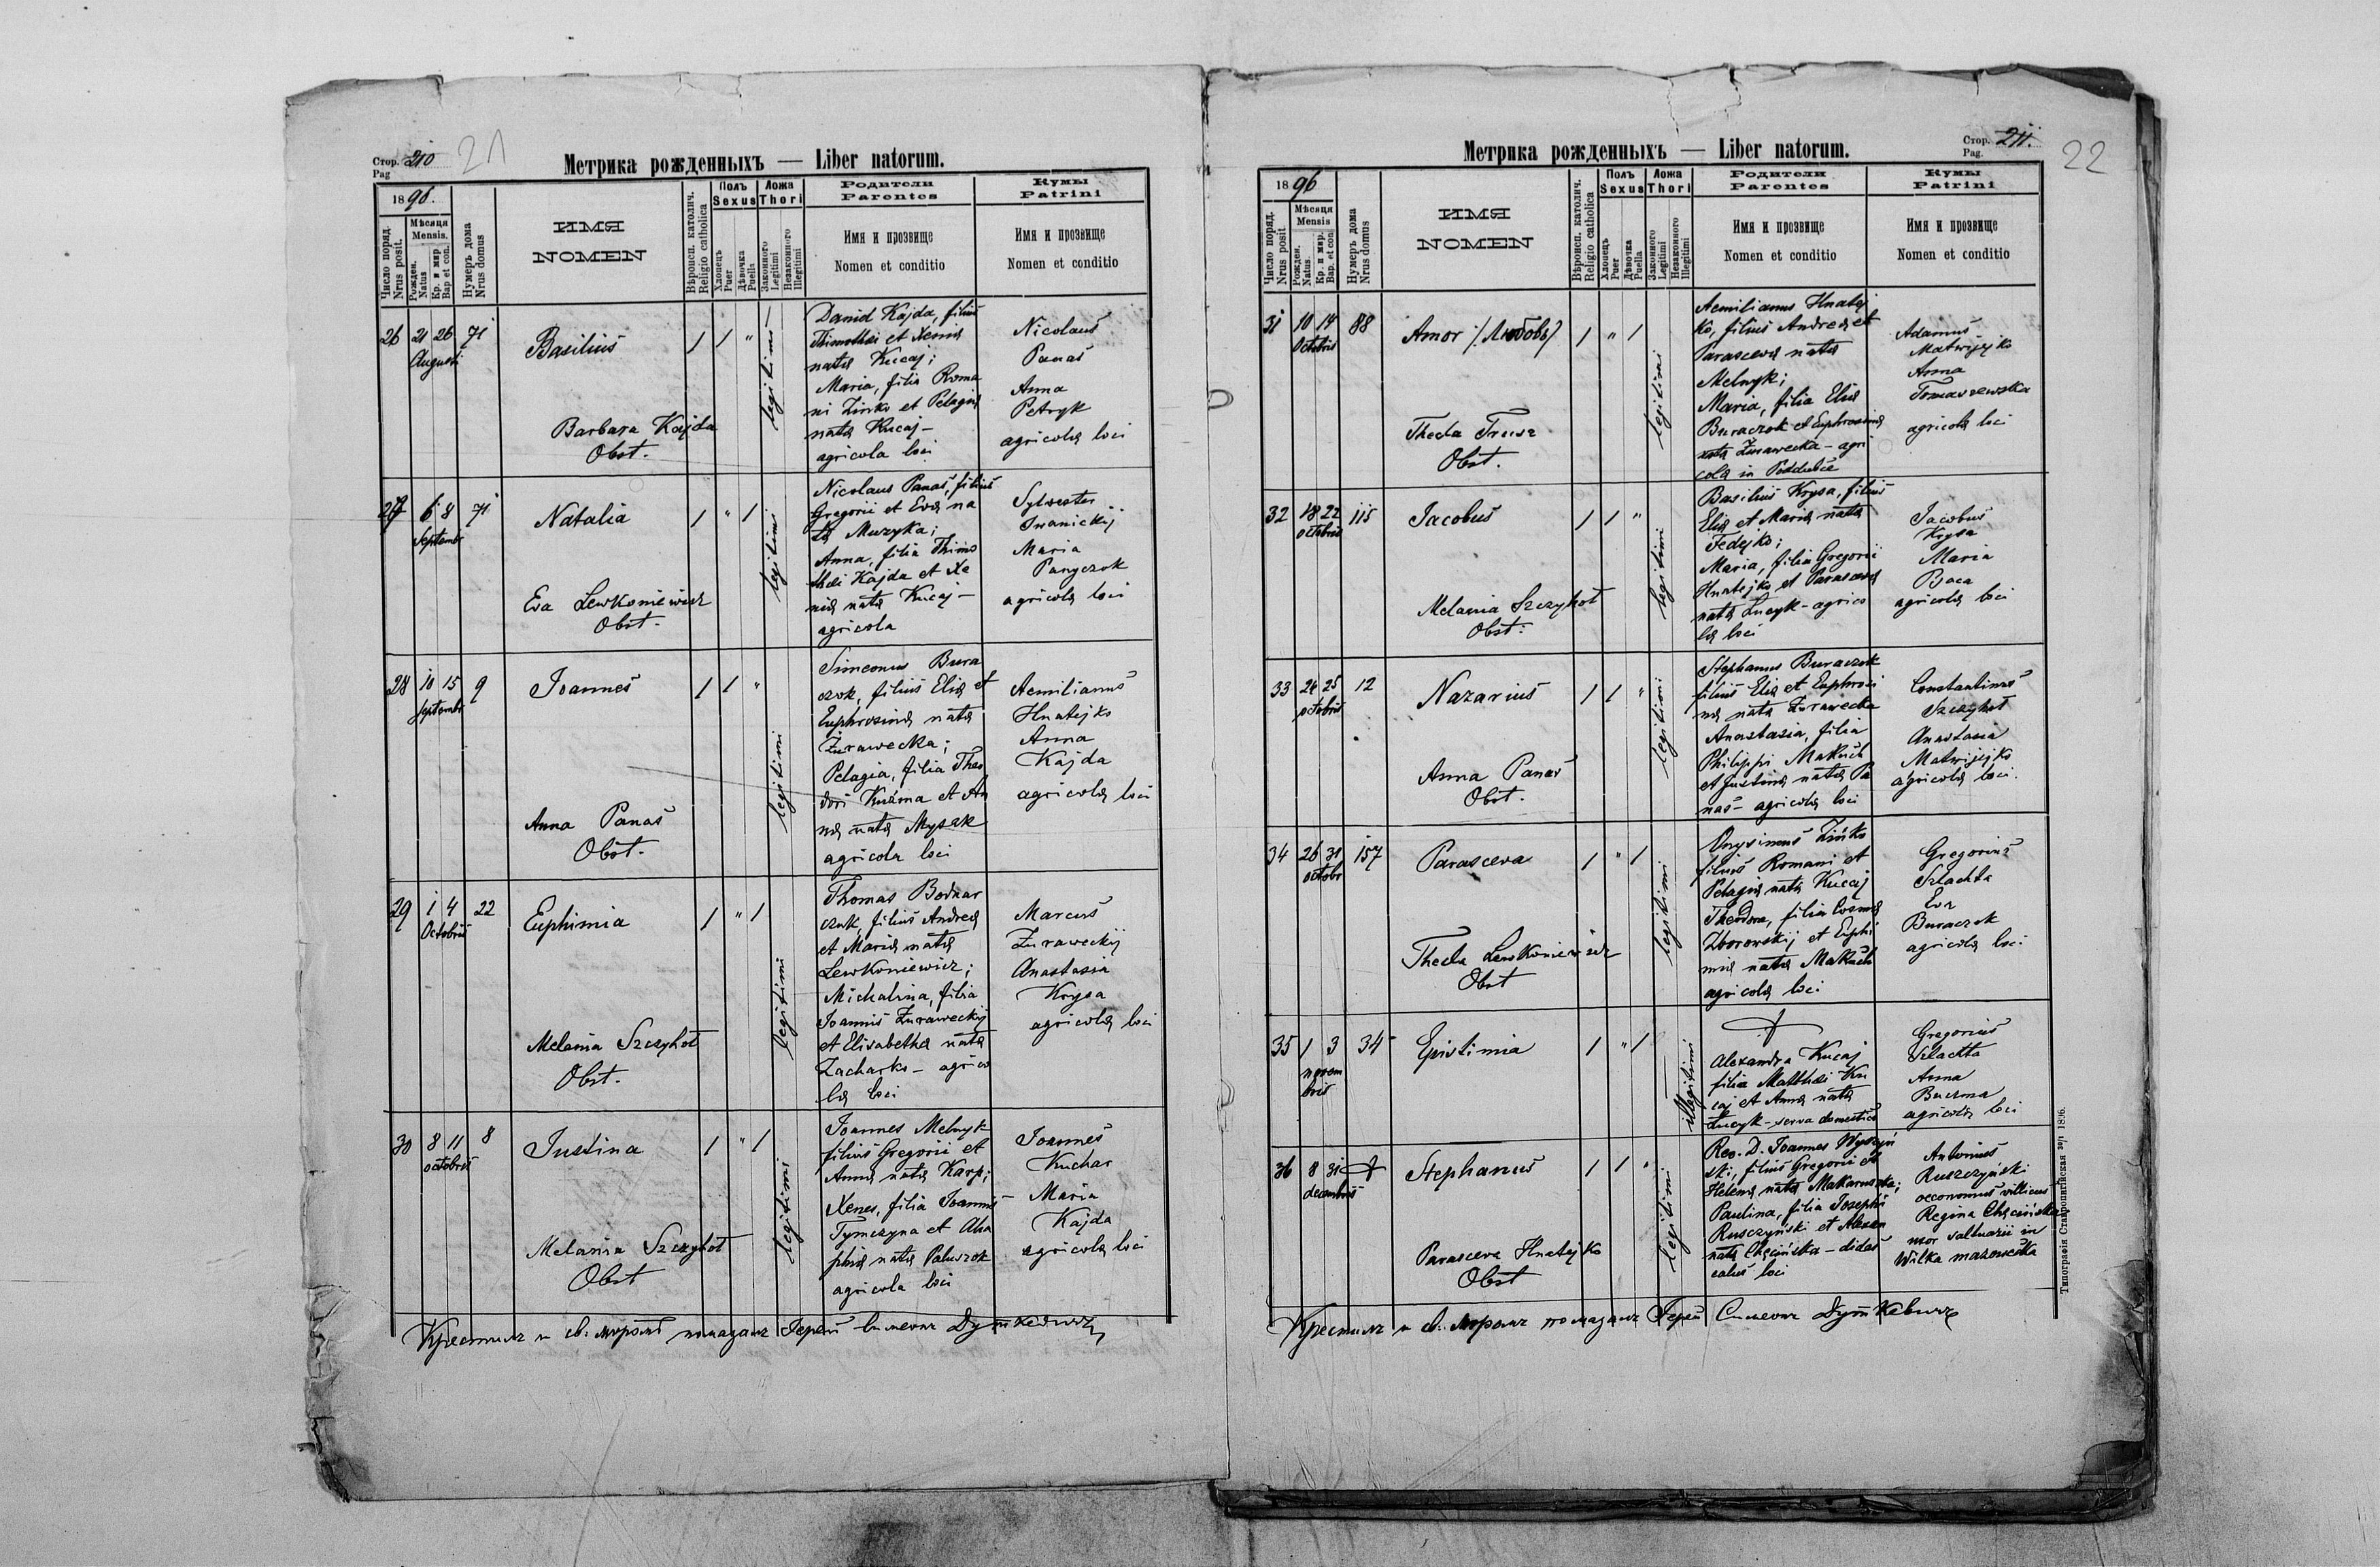 Стор. 210
Pag
21
Метрика рожденныхъ — Liber natorum.
1896.
Число поряд.
Nrus posit.
Мѣсяця
Mensis.
Рожден.
Natus
Кр. и мир.
Bap et con.
Нумеръ дома
Nrus domus
ИМЯ
NOMEN
Вѣроисп. католич.
Religio catholica
Полъ
Sexus
Хлопецъ
Puer
Дѣвочка
Puella
Ложа
Thori
Законного
Legitimi
Незаконного
Illegitimi
Родители
Parentes
Имя и прозвище
Nomen et conditio
Кумы
Patrini
Имя и прозвище
Nomen et conditio
26 21 26 71
Augusti
Basilius
Barbara Kajda
Obst.
1 1 "
legitimi
Daniel Kajda, filius
Thimothei et Xenia
nata Kucaj;
Maria, filia Roma
ni Zinko et Pelagia
nata Kucaj –
agricola loci
Nicolaus
Panas
Anna
Petryk
agricolæ loci
27 6 8 71
Septembr
Natalia
Eva Lewkoniewicz
Obst.
1 " 1
legitimi
Nicolaus Panas, filius
Gregorii et Eva na
ta Muzyka;
Anna, filia Thimo
thei Kajda et Xe
nia nata Kucaj –
agricola
Sylvester
Iwanickij
Maria
Panyczok
agricolæ loci
28 10 15 9
Septembr
Joannes
Anna Panas
Obst.
1 1 "
legitimi
Simeonus Bura
czok, filius Eliæ et
Euphrosina nata
Żurawecka;
Pelagia, filia Theo
dori Kuźma et An
na nata Mysak
agricola loci
Aemilianus
Hnatejko
Anna
Kajda
agricolæ loci
29 1 4 22
Octobris
Euphimia
Melania Szczyhoł
Obst.
1 " 1
legitimi
Thomas Bodnar
czuk, filius Andreæ
et Maria nata
Lewkoniewicz;
Michalina, filia
Joannis Żuraweckij
et Elisabetha nata
Zacharko – agrico
læ loci
Marcus
Żuraweckij
Anastasia
Krysa
agricolæ loci
30 8 11 8
octobris
Justina
Melania Szczyhoł
Obst
1 " 1
legitimi
Joannes Melnyk
filius Gregorii et
Anna nata Karp;
Xenes, filia Joannis
Tymczyna et Aha
phia nata Paluszok
agricola loci
Joannes
Kuchar
Maria
Kajda
agricolæ loci
Крестилъ и св. миромъ помазалъ Іерей Симеонъ Дуткевичъ
Стор. 211.
Pag.
22
Метрика рожденныхъ — Liber natorum.
1896
Число поряд.
Nrus posit.
Мѣсяця
Mensis
Рожден.
Natus.
Кр. и мир.
Bap. et con
Нумеръ дома
Nrus domus
ИМЯ
NOMEN
Вѣроисп. католич.
Religio catholica
Полъ
Sexus
Хлопецъ
Puer
Дѣвочка
Puella
Ложа
Thori
Законного
Legitimi
Незаконного
Illegitimi
Родители
Parentes
Имя и прозвище
Nomen et conditio
Кумы
Patrini
Имя и прозвище
Nomen et conditio
31 10 14 88
Octobris
Amor /Любовь/
Thecla Trusz
Obst.
1 " 1
legitimi
Aemilianus Hnatej
ko, filius Andreæ et
Parasceva nata
Melnyk;
Maria, filia Eliæ
Buraczok et Euphrosina
nata Żurawecka – agri
colæ in Poddubce
Adamus
Matwijejko
Anna
Tomaszewska
agricolæ loci
32 18 22 115
octobris
Jacobus
Melania Szczyhoł
Obst.
1 1 "
legitimi
Basilius Krysa, filius
Eliæ et Maria nata
Fedejko;
Maria, filia Gregorii
Hnatejko et Parasceva
nata Łucyk – agrico
læ loci
Jacobus
Krysa
Maria
agricolæ loci
33 24 25 12
octobris
Nazarius
Anna Panas
Obst.
1 1 "
legitimi
Stephanus Buraczok
filius Eliæ et Euphrosi
na nata Żurawecka
Anastasia, filia
Philippi Makuch
et Justina nata Pa
nas – agricolæ loci
Constantinus
Szczyhoł
Anastasia
Matwijejko
agricolæ loci.
34 26 31 157
octobr
Parasceva
Thecla Lewkoniewicz
Obst
1 " 1
legitimi
Onysimus Zińko
filius Romani et
Pelagia nata Kucaj
Theodora, filia Cosmæ
Zborowskij et Euphi
mia nata Makuch
agricolæ loci
Gregorius
Szlachta
Eva
Buraczok
agricolæ loci
35 1 3 34
novem
bris
Epistimia
1 " 1
illegitimi
Alexandra Kucaj
filia Matthæi Ku
caj et Anna nata
Łucyk – serva domestica
Gregorius
Szlachta
Anna
Buczma
agricolæ loci
36 8 31
decembris
Stephanus
Parasceva Hnatejko
Obst
1 1 "
legitimi
Rev. D. Joannes Wyszyń
ski, filius Gregorii et
Helena nata Makaruszka;
Paulina, filia Josephi
Rusczyński et Alexan
nata Chęcińska – didas
calus loci
Antonius
Ruszczyński
oeconomus villicus
Regina Chęcińska
uxor saltuarii in
Wilka mazowiecka
Крестилъ и св. миромъ помазалъ Іерей Симеонъ Дуткевичъ
Типографія Ставропигійская 1896.